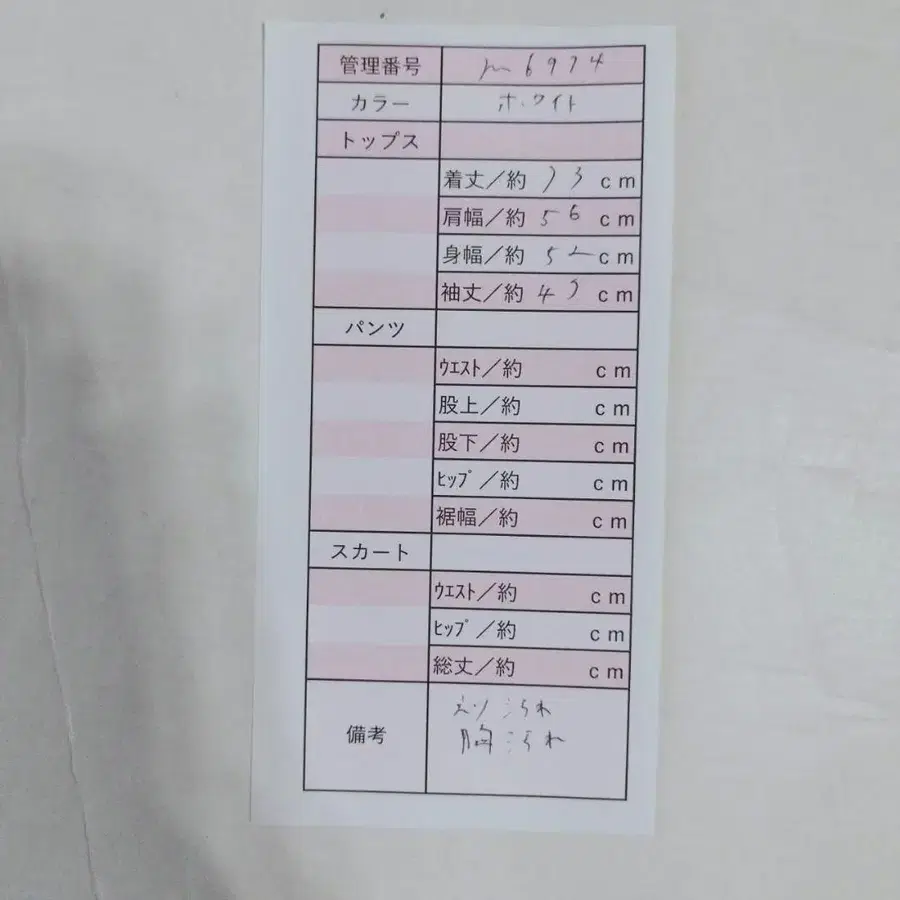 管理番号 m6974
カラー ホワイト
トップス
着丈／約 73 cm
肩幅／約 56 cm
身幅／約 52 cm
袖丈／約 49 cm
パンツ
ｳｴｽﾄ／約 cm
股上／約 cm
股下／約 cm
ﾋｯﾌﾟ／約 cm
裾幅／約 cm
スカート
ｳｴｽﾄ／約 cm
ﾋｯﾌﾟ／約 cm
総丈／約 cm
備考
えり汚れ
胸汚れ